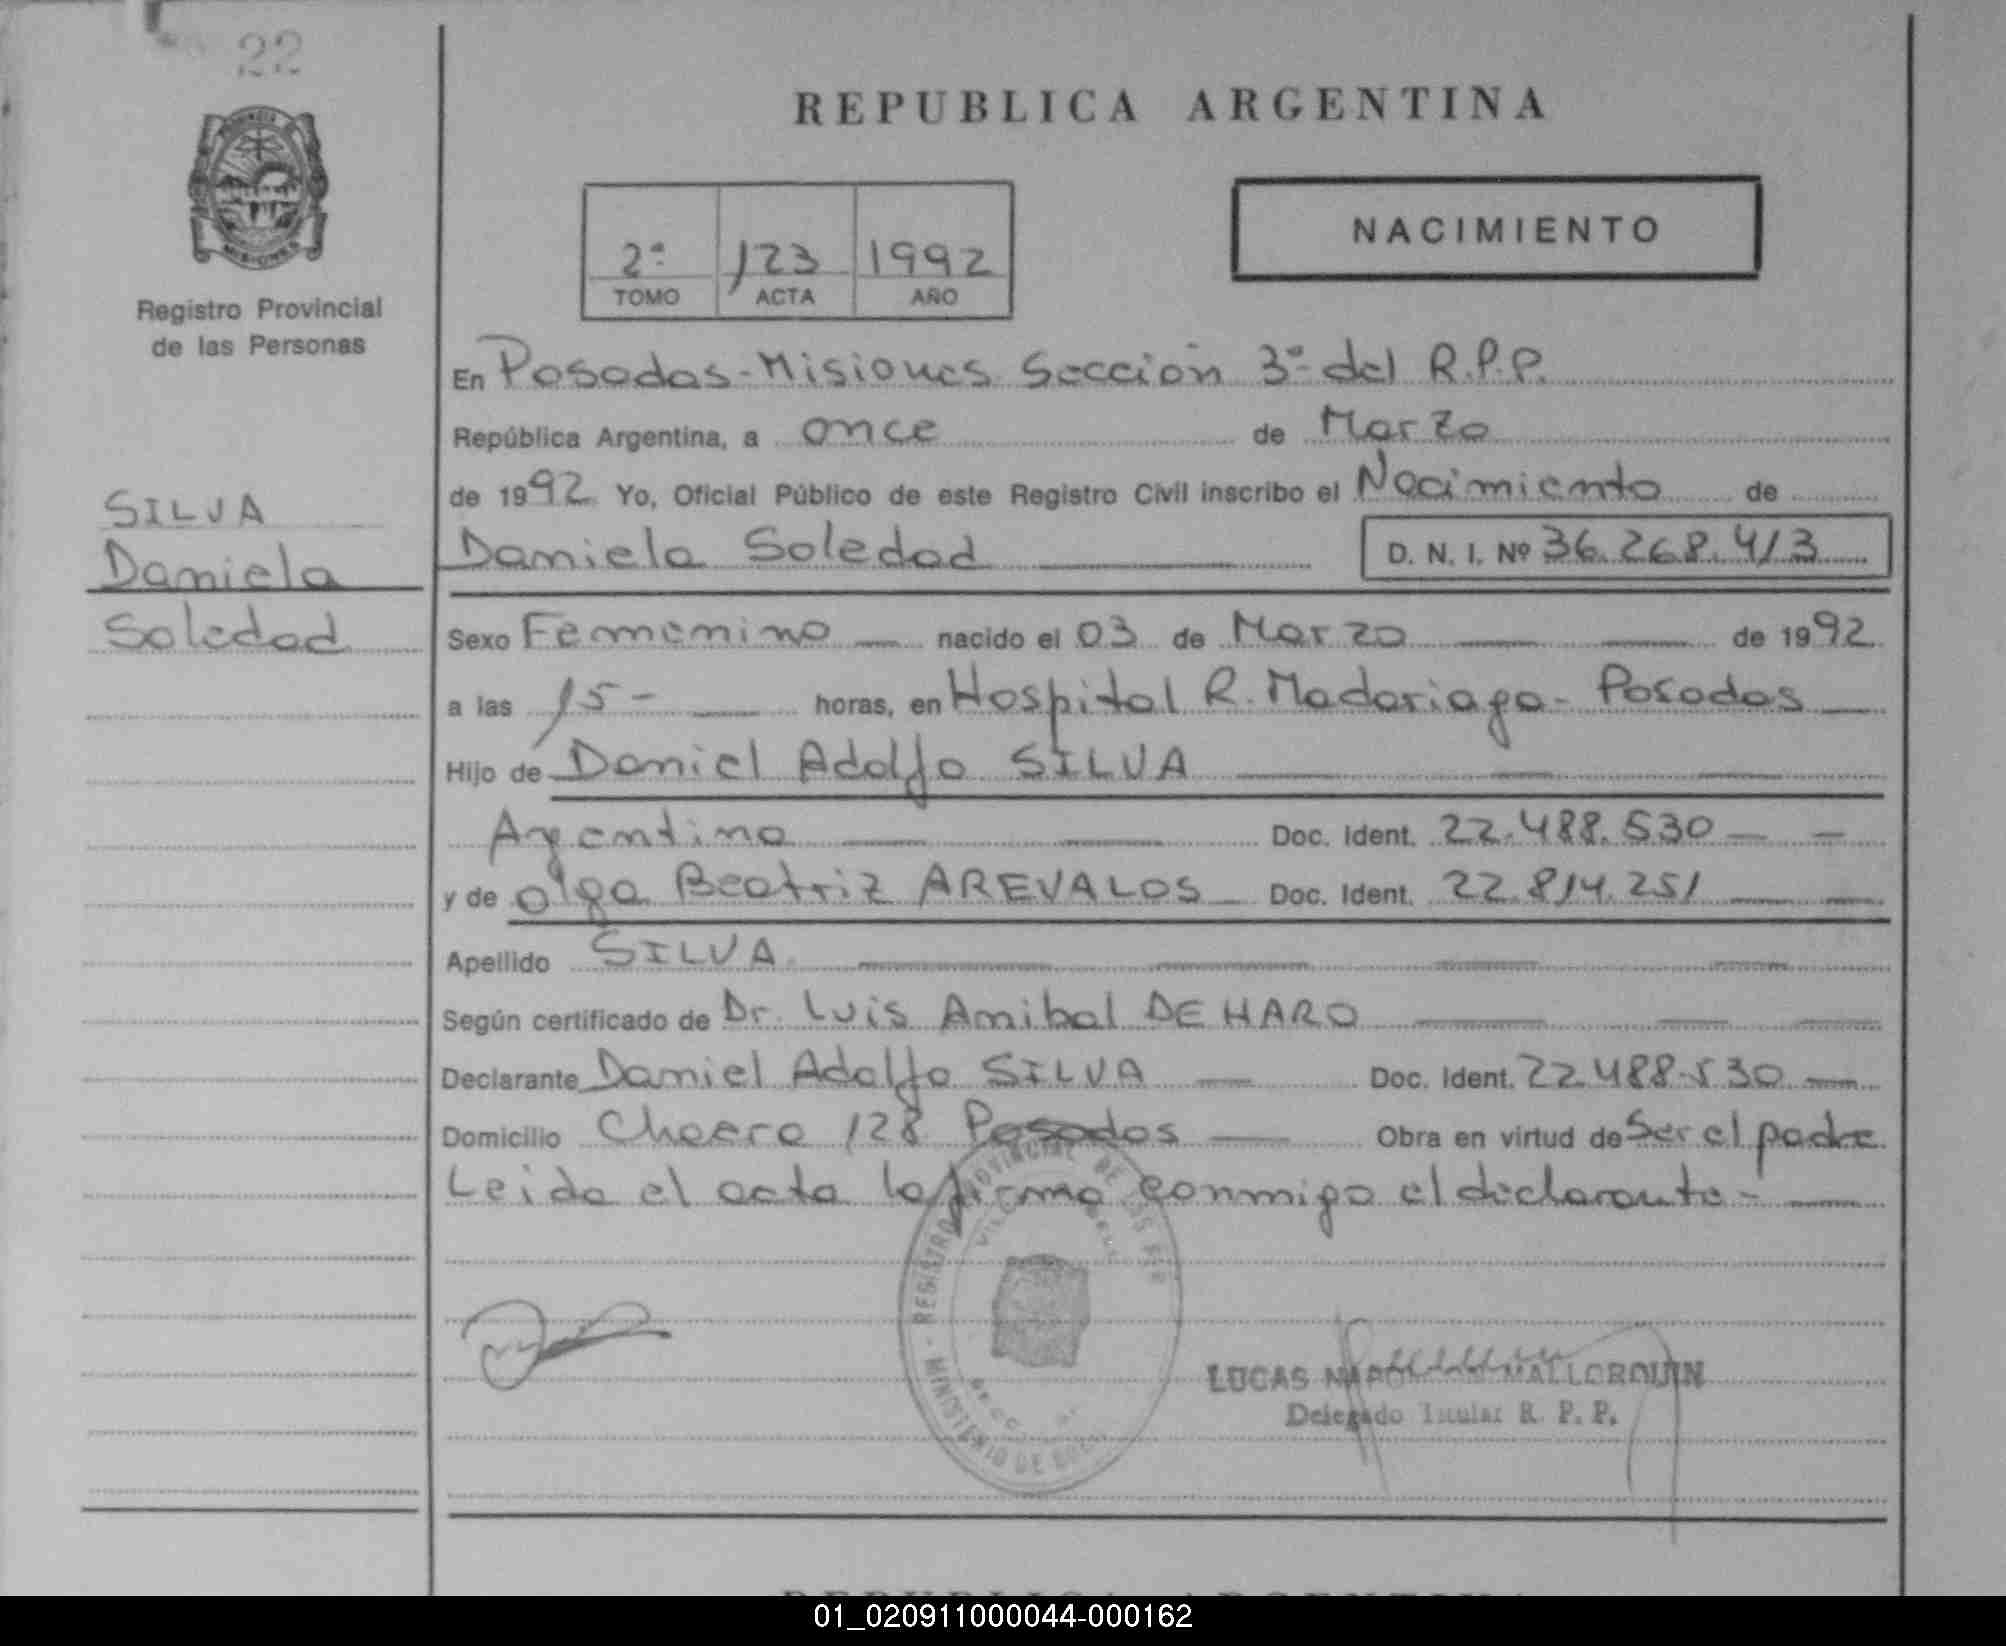 22
Registro Provincial
de las Personas
SILVA
Daniela
Soledad
REPUBLICA ARGENTINA
2º 123 1992
TOMO ACTA AÑO
NACIMIENTO
En Posadas - Misiones Sección 3º del R.P.P.
República Argentina, a once de Marzo
de 1992 Yo, Oficial Público de este Registro Civil inscribo el Nacimiento de
Daniela Soledad D. N. I. Nº 36.268.413
Sexo Femenino nacido el 03 de Marzo de 1992
a las 15- horas, en Hospital R. Madariaga - Posadas
Hijo de Daniel Adolfo SILVA
Argentino Doc. Ident. 22.488.530
y de Olga Beatriz AREVALOS Doc. Ident. 22.814.251
Apellido SILVA
Según certificado de Dr. Luis Anibal DE HARO
Declarante Daniel Adolfo SILVA Doc. Ident. 22.488.530
Domicilio 128 Posadas Obra en virtud de Ser el padre
Leida el acta la firma conmigo el declarante -
REGISTRO PROVINCIAL DE LAS PER
MINISTERIO DE
LUCAS MALLORQUIN
Delegado Titular R. P. P.
REPUBLICA ARGENTINA
01_020911000044-000162